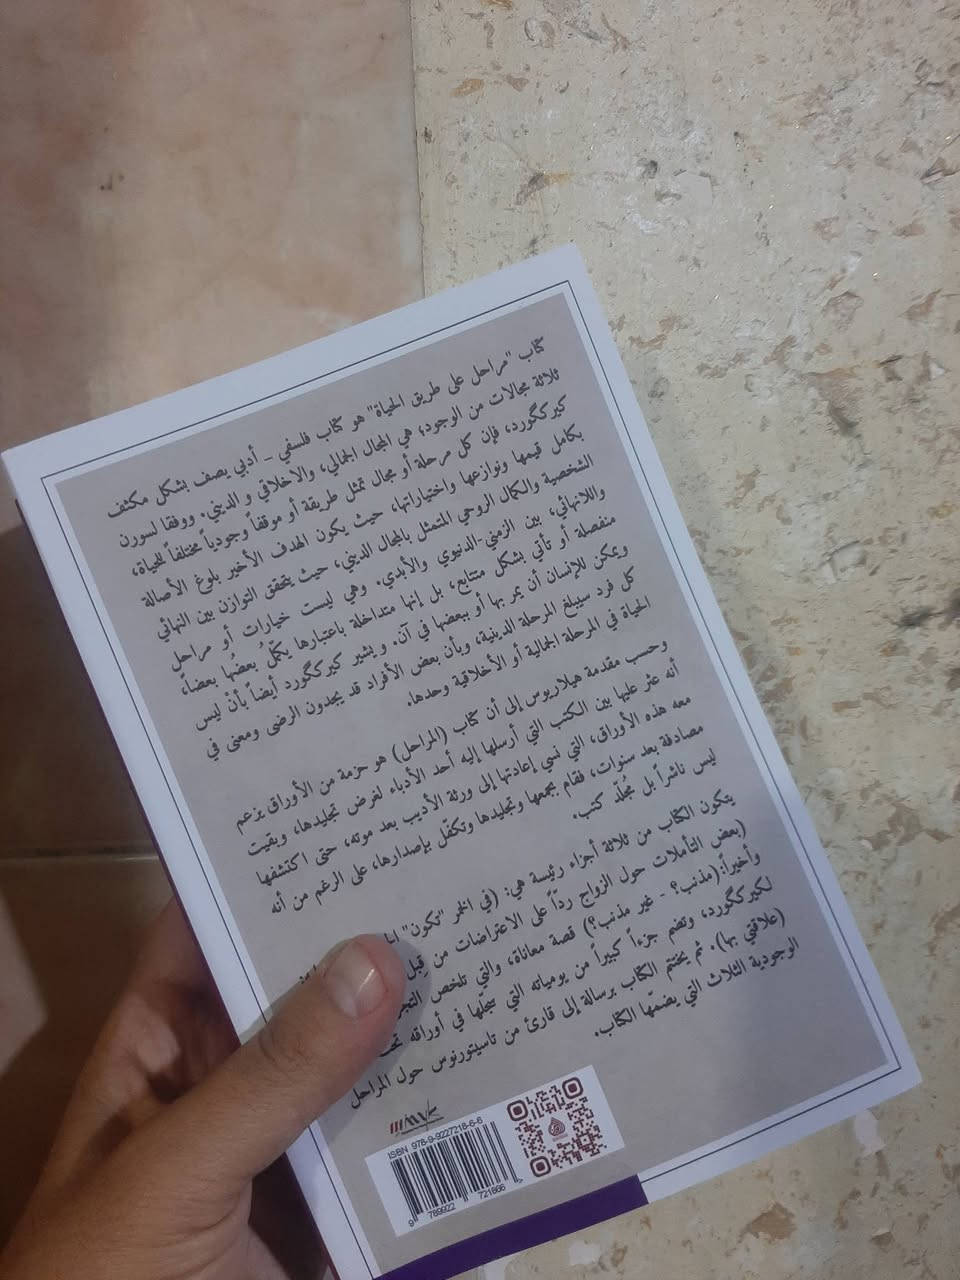 كتاب "مراحل على طريق الحياة" هو كتاب فلسفي – أدبي يصف بشكل مكثف
ثلاثة مجالات من الوجود؛ هي المجال الجمالي، والأخلاقي والديني. ووفقا لسورن
كيركگورد، فإن كل مرحلة أو مجال تمثل طريقة أو موقفاً وجودياً مختلفاً للحياة،
بكامل قيمها ونوازعها واختياراتها، حيث يكون الهدف الأخير بلوغ الأصالة
الشخصية والكمال الروحي المتمثل بالمجال الديني، حيث يتحقق التوازن بين النهائي
واللانهائي، بين الزمني-الدنيوي والأبدي. وهي ليست خيارات أو مراحل
منفصلة أو تأتي بشكل متتابع، بل إنها متداخلة باعتبارها يكمّلُ بعضها بعضاً،
ويمكن للإنسان أن يمر بها أو ببعضها في آن. ويشير كيركگورد أيضاً بأنْ ليس
كل فرد سيبلغ المرحلة الدينية، وبأن بعض الأفراد قد يجدون الرضى ومعنى في
الحياة في المرحلة الجمالية أو الأخلاقية وحدها.
وحسب مقدمة هيلاريوس إلى أن كتاب (المراحل) هو حزمة من الأوراق يزعم
أنه عثر عليها بين الكتب التي أرسلها إليه أحد الأدباء لغرض تجليدها، وبقيت
معه هذه الأوراق، التي نسي إعادتها إلى ورثة الأديب بعد موته، حتى اكتشفها
مصادفة بعد سنوات، فقام بجمعها وتجليدها وتكفّل بإصدارها، على الرغم من أنه
ليس ناشراً بل مُجلّد كتب.
يتكون الكتاب من ثلاثة أجزاء رئيسة هي: (في الخمر "تكون"
(بعض التأملات حول الزواج رداً على الاعتراضات من قِبل
وأخيراً: (مذنب؟ - غير مذنب؟) قصة معاناة، والتي تلخص
لكيركگورد، وتضم جزءاً كبيراً من يومياته التي سجّلها في أوراقه
(علاقتي بها). ثم يختتم الكتاب برسالة إلى قارئ من تاسيتورنوس حول المراحل
الوجودية الثلاث التي يضمّها الكتاب.
ISBN 978-9-9227218-6-6
9 789922 721866